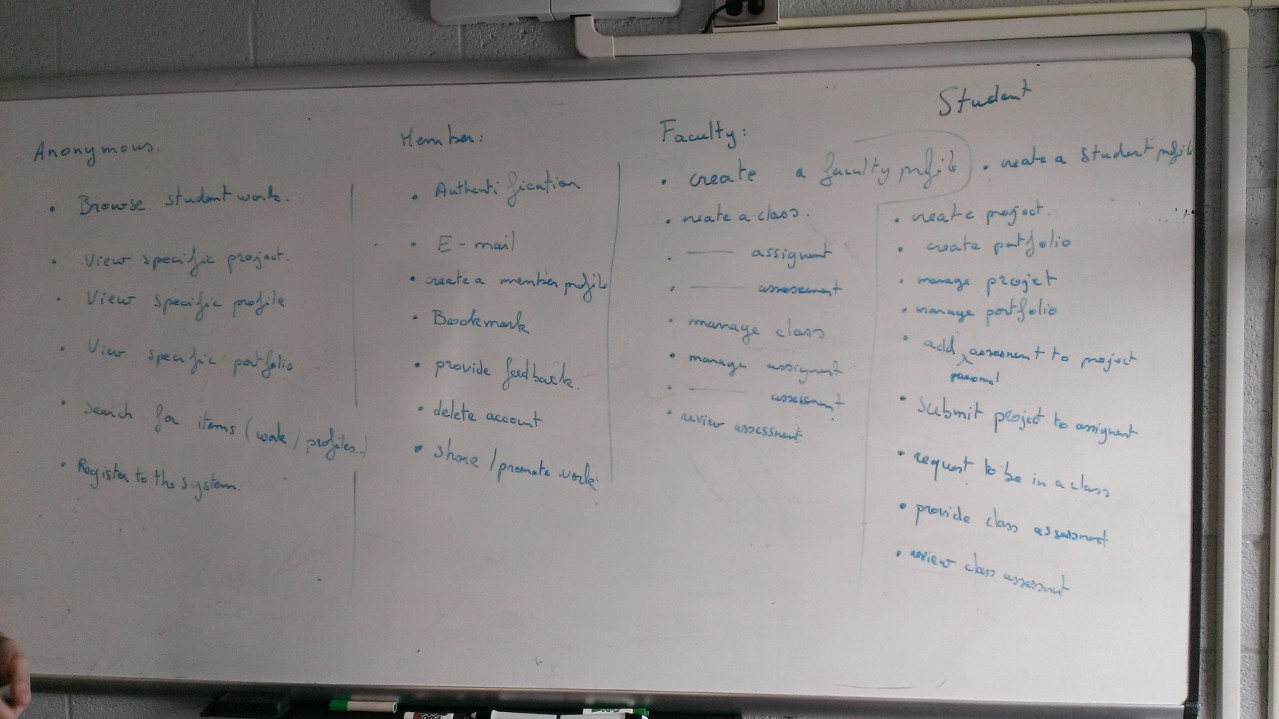 Anonymous.
• Browse student work.
• View specific project.
• View specific profile
• View specific portfolio
• search for items (work / profiles..)
• Register to the system.
Member:
• Authentification
• E-mail
• create a member profile
• Bookmark
• provide feedback.
• delete account
• share / promote work
Faculty:
• create a faculty profile
• create a class.
• —— assignment
• —— assessment
• manage class
• manage assignment
• —— assessment
• review assessment
Student
• create a student profile
• create project.
• create portfolio
• manage project
• manage portfolio
• add personal assessment to project
• submit project to assignment
• request to be in a class
• provide class assessment
• review class assessment